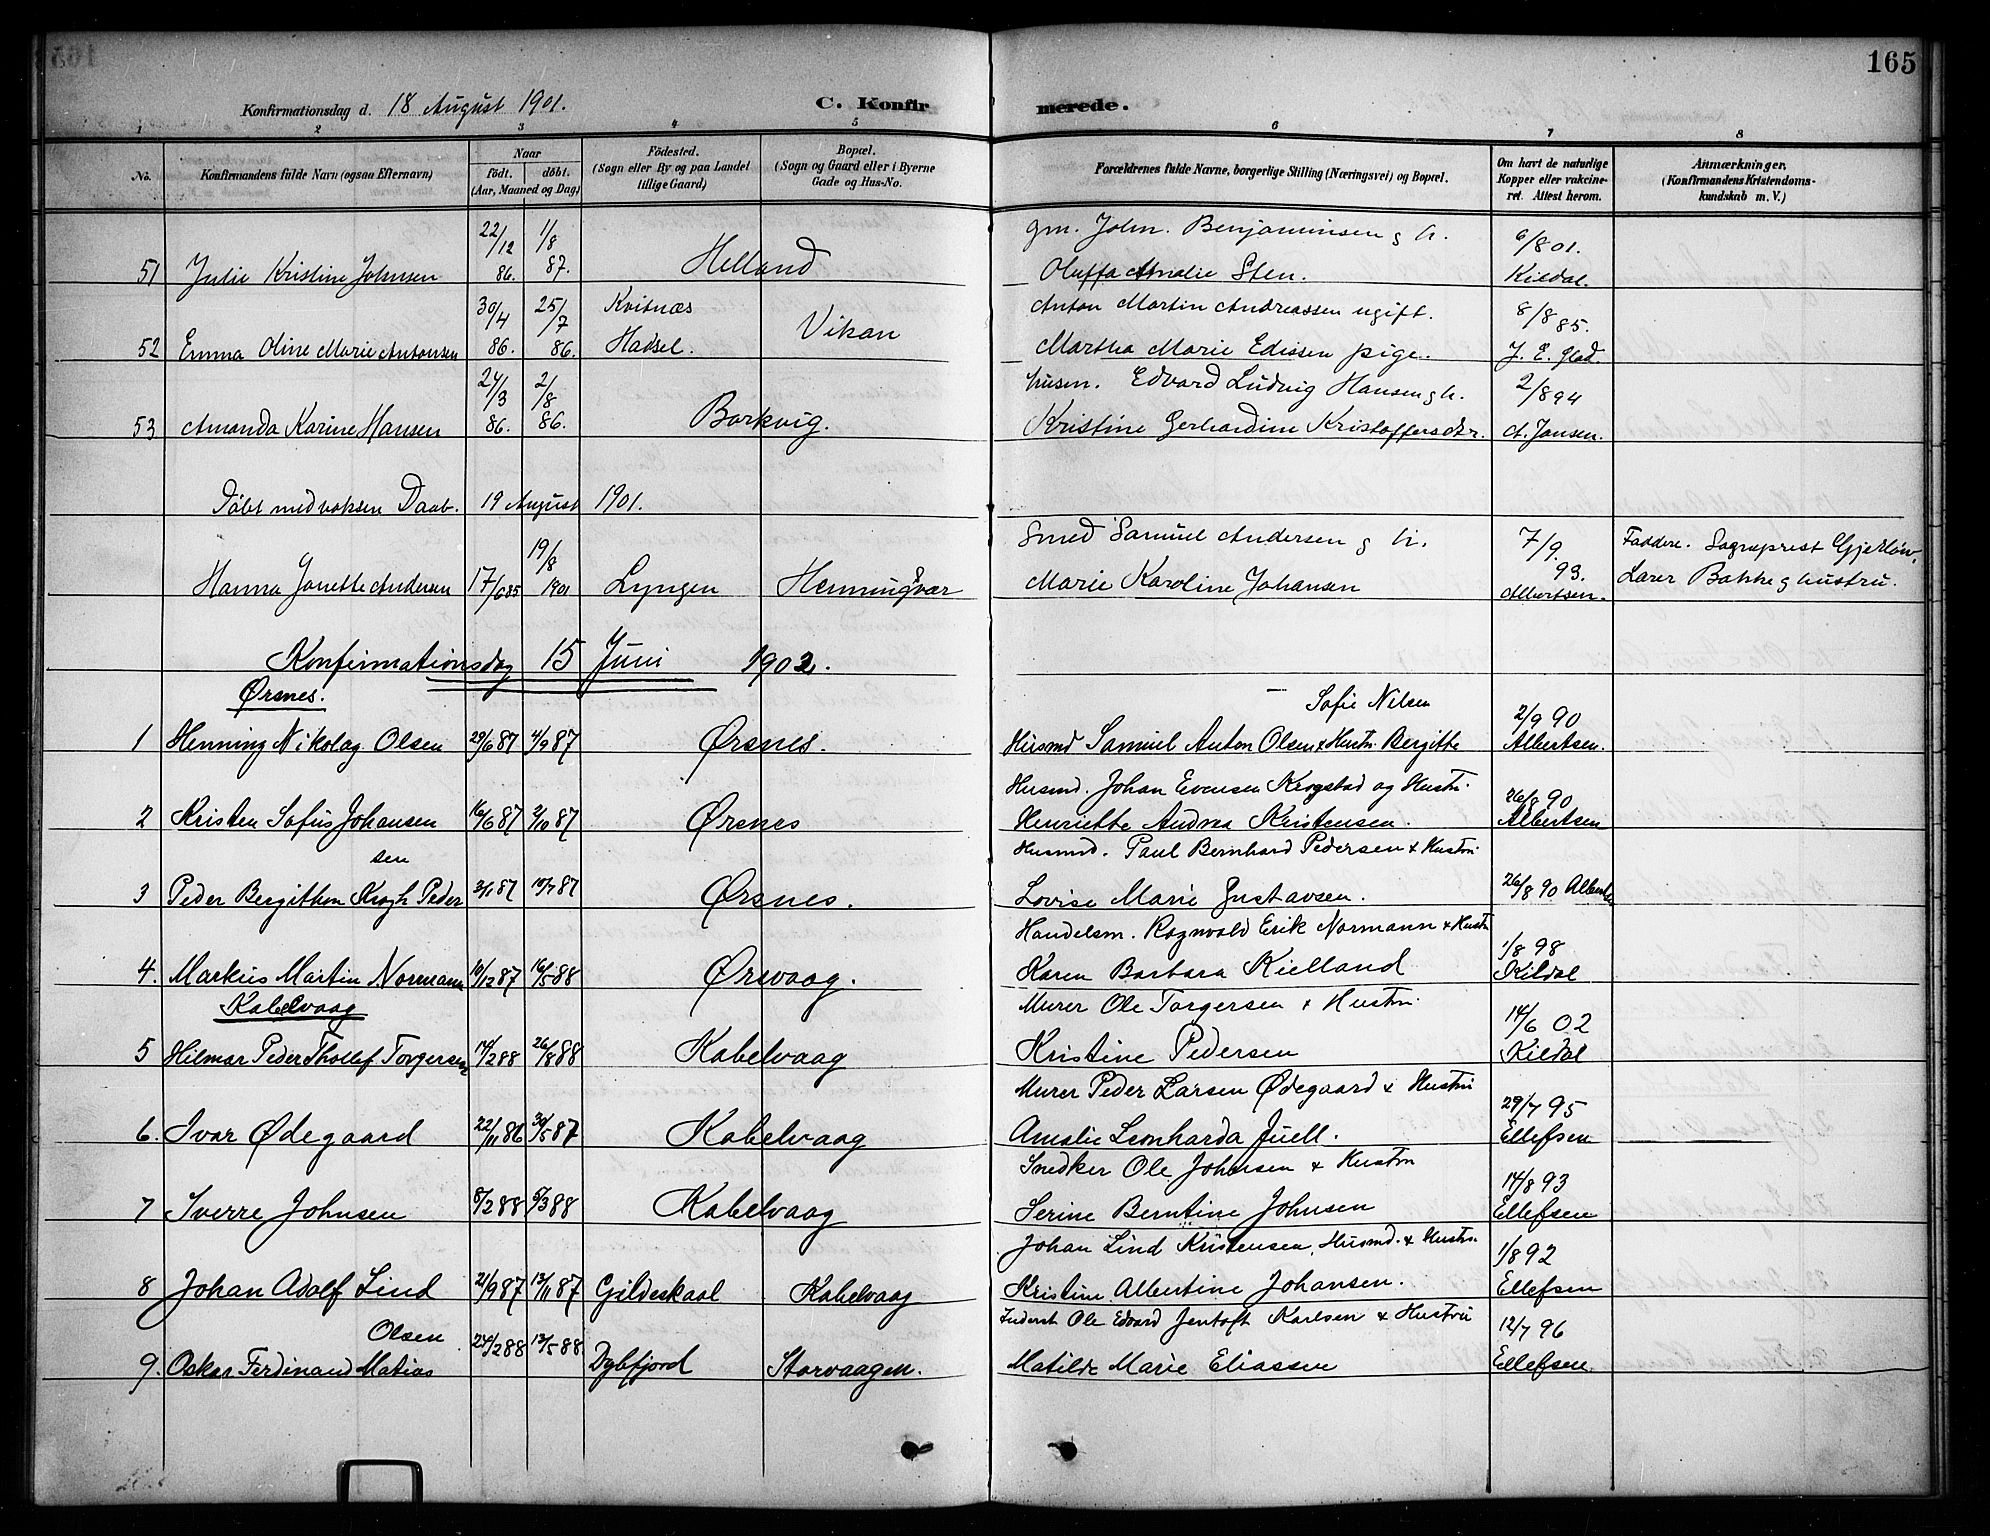 165
Konfirmationsdag d. 18 August 1901. C. Konfirmerede.
1 2 3 4 5 6 7 8
No. Konfirmandens fulde Navn (ogsaa Efternavn) Naar født. døbt. (Aar, Maaned og Dag) Fødested. (Sogn eller By og paa Landet tillige Gaard) Bopæl. (Sogn og Gaard eller i Byerne Gade og Hus-No. Forældrenes fulde Navne, borgerlige Stilling (Næringsvei) og Bopæl. Om havt de naturlige Kopper eller vakcineret. Attest herom. Anmærkninger, (Konfirmandens Kristendomskundskab m. V.)
gm. John. Benjaminsen g h.
51 Julie Kristine Johnsen 22/12 86. 1/8 87. Helland Oluffa Amalie Sten. 6/8 01. Kildal.
Anton Martin Andreassen ugift.
52 Emma Oline Marie Antonsen 30/4 86. 25/7 86. Kvitnæs Hadsel. Vikan Martha Marie Edissen pige. 8/8 85. J. E. Glad.
husm. Edvard Ludvig Hansen g h.
53 Amanda Karine Hansen 24/3 86. 2/8 86. Barkvig. Kristine Gerhardine Kristoffersdtr. 2/8 94 A. Jansen.
Døbt med voksen Daab. 19 August 1901.
Smed Samuel Andersen g h. Faddere. Sogneprest Gjerløw,
Hanna Janette Andersen 17/6 85 19/8 1901 Lyngen Henningsvær Marie Karoline Johansen 7/9. 93. Albertsen. Lærer Bakke g hustru.
Konfirmationsdag 15 Juni 1902.
Ørsnes.
Sofie Nilsen
1 Henning Nikolay Olsen 29/6 87 4/9 87 Ørsnes. Husmd Samuel Anton Olsen & Hustr. Bergitte 2/9 90 Albertsen.
Husmd. Johan Evensen Krogstad og Hustr.
2 Kristen Sofus Johansen 16/6 87 2/10 87 Ørsnes Henriette Andrea Kristensen. 26/8 90 Albertsen
Husmd. Paul Bernhard Pedersen & Hustr.
sen
3 Peder Bergithon Krogh Peder 3/1 87 10/7 87 Ørsnes. Lovise Marie Gustavsen. 26/8 90
Handelsm. Ragnvald Erik Normann & Hustr
4. Markus Martin Normann 10/12 87 16/5 88 Ørsvaag. Karen Barbara Kielland 1/8 98 Kildal
Kabelvaag
Murer Ole Torgersen & Hustr.
5 Hilmar Peder Thollef Torgersen 14/2 88 26/8 88 Kabelvaag Kristine Pedersen 14/6 02 Kildal
Murer Peder Larsen Ødegaard & Hustru
6. Ivar Ødegaard 22/11 86 30/5 87 Kabelvaag Amalie Leonharda Juell. 29/7 95 Ellefsen
Snedker Ole Johnsen & Hustru
7 Sverre Johnsen 8/2 88 5/3 88 Kabelvaag Serine Berntine Johnsen 14/8 93 Ellefsen
Johan Lind Kristensen, Husmd. & Hustr.
8 Johan Adolf Lind 21/9 87 13/11 87 Gildeskaal Kabelvaag Kristine Albertine Johansen. 1/8 92 Ellefsen
Inderst Ole Edvard Jentoft Karlsen & Hustru
Olsen
9. Oskar Ferdinand Matias 24/2 88 13/5 88 Dybfjord Storvaagen. Matilde Marie Eliassen 12/7 96 Ellefsen.